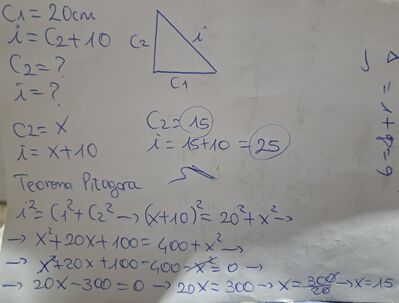 C1 = 20cm
i = C2+10
C2 = ?
i = ?
C2
i
C1
C2 = x
i = x+10
C2 = 15
i = 15+10 = 25
Teorema Pitagora
i² = C1² + C2² → (x+10)² = 20² + x² →
→ x² + 20x + 100 = 400 + x² →
→ x² + 20x + 100 - 400 - x² = 0 →
→ 20x - 300 = 0 → 20x = 300 → x = 300/20 → x = 15